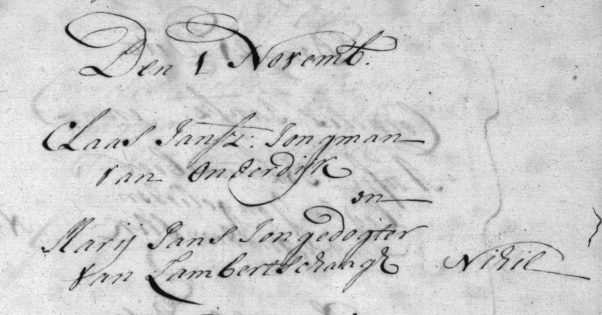 Den 1 Novemb.
Claas Jansz: Jongman
van Onderdijk
en
Marij Jans Jongedogter
van Lambertschaagk Nihil